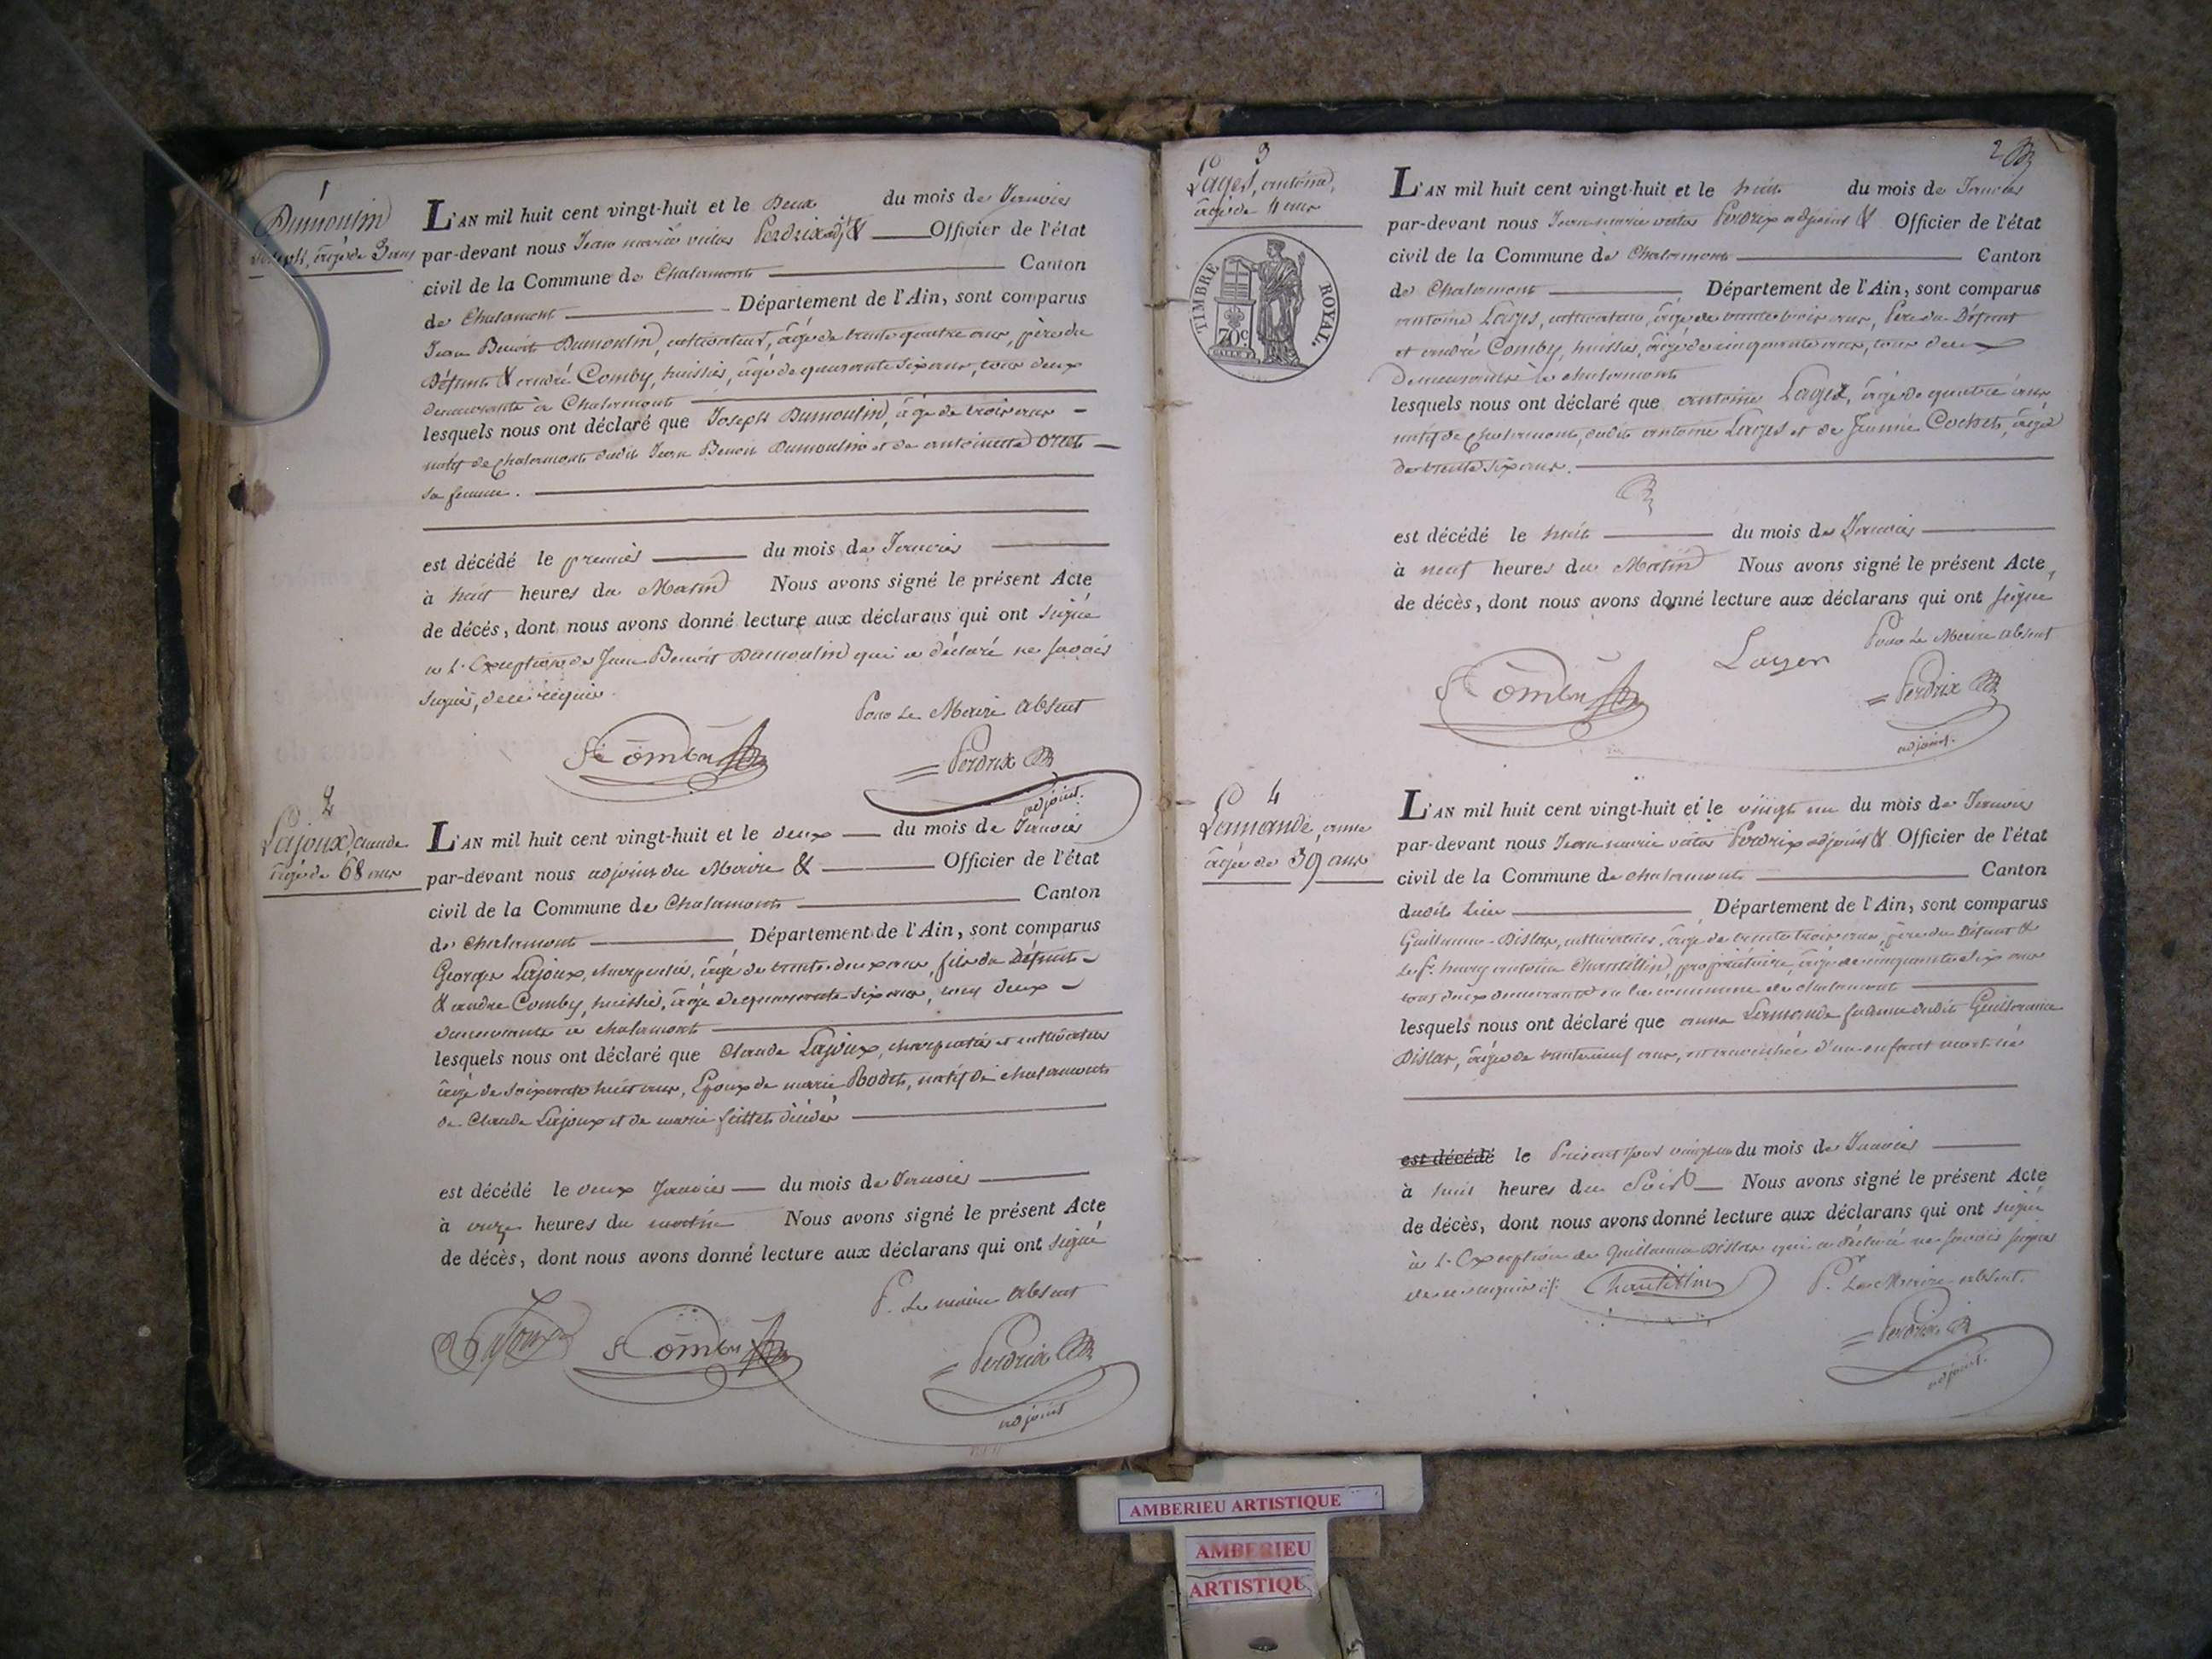 1
Dumoulin
Joseph, âgé de 3 ans
L'AN mil huit cent vingt-huit et le Deux du mois de Janvier
par-devant nous Jean marie Perdrix adjt & Officier de l'état
civil de la Commune de Chalamont Canton
de Chalamont Département de l'Ain, sont comparus
Jean Benoit Dumoulin, cultivateur, âgé de trente quatre ans, père du
Défunt & andré Comby, huissier, âgé de quarante six ans, tous deux
demeurants à Chalamont
lesquels nous ont déclaré que Joseph Dumoulin, âgé de trois ans
natif de Chalamont dudit Jean Benoit Dumoulin et de antoinette
sa femme.
est décédé le premier du mois de Janvier
à huit heures du Matin Nous avons signé le présent Acte
de décés, dont nous avons donné lecture aux déclarans qui ont signé
à l'Exception de Jean Benoit Dumoulin qui a déclaré ne savoir
signer, de ce requis.
Pour Le Maire Absent
Comby
Perdrix
adjoint.
2
Lajoux, claude
âgé de 68 ans
L'AN mil huit cent vingt-huit et le deux du mois de Janvier
par-devant nous adjoint du Maire & Officier de l'état
civil de la Commune de Chalamont Canton
de Chalamont Département de l'Ain, sont comparus
Georges Lajoux, charpentier, âgé de trente deux ans, fils du Défunt
& andre Comby, huissier, âgé de quarante six ans, tous deux
demeurants à chalamont
lesquels nous ont déclaré que Claude Lajoux, charpentier et cultivateur
âgé de soixante huit ans, Epoux de marie Bodet, natif de chalamont
de Claude Lajoux et de marie décédés
est décédé le deux Janvier du mois de Janvier
à onze heures du matin Nous avons signé le présent Acte
de décès, dont nous avons donné lecture aux déclarans qui ont signé
P. Le maire Absent
Lajoux
Comby
Perdrix
adjoint
2
3
Layes, antoine,
âgé de 4 ans
TIMBRE ROYAL.
70c
L'AN mil huit cent vingt-huit et le huit du mois de Janvier
par-devant nous Jean marie Perdrix adjoint & Officier de l'état
civil de la Commune de Chalamont Canton
de Chalamont Département de l'Ain, sont comparus
antoine Layes, cultivateur, âgé de trente trois ans, Père du Défunt
et andré Comby, huissier, âgé de cinquante ans, tous deux
Demeurants à chalamont
lesquels nous ont déclaré que antoine Layes, âgé de quatre ans,
natif de Chalamont, dudit antoine Layes et de Jeanne Cochet, âgée
de trente six ans.
est décédé le huit du mois de Janvier
à neuf heures du Matin Nous avons signé le présent Acte
de décès, dont nous avons donné lecture aux déclarans qui ont signé
Pour Le Maire Absent
Comby
Layes
Perdrix
adjoint.
4
Lamande, anne
âgée de 39 ans
L'AN mil huit cent vingt-huit et le vingt un du mois de Janvier
par-devant nous Jean marie Perdrix adjoint & Officier de l'état
civil de la Commune de chalamont Canton
dudit lieu Département de l'Ain, sont comparus
Guillaume Dislar, cultivateur, âgé de trente trois ans, père du Défunt &
le Sr. antoine Chantillin, propriétaire, âgé de cinquante six ans
tous deux demeurants en la commune de chalamont
lesquels nous ont déclaré que anne Lamande femme dudit Guillaume
Dislar, âgée de trente neuf ans, est accouchée d'un enfant mort né
est décédé le Présent jour vingt un du mois de Janvier
à huit heures du Soir Nous avons signé le présent Acte
de décès, dont nous avons donné lecture aux déclarans qui ont signé
à l'Exception de Guillaume Dislar qui a déclaré ne savoir signer
de ce requis
Chantillin
P. Le Maire absent.
Perdrix
adjoint.
AMBERIEU ARTISTIQUE
AMBERIEU
ARTISTIQU